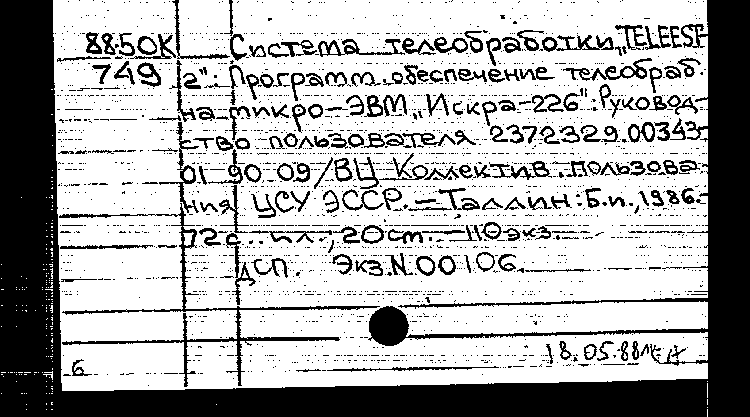 88-50К Система телеобработки „TELEEST-
749 2": Программ. обеспечение телеобраб.
на микро-ЭВМ „Искра-226": Руковод-
ство пользователя 2372329.00343-
01 90 09/ВЦ Коллектив. пользова-
ния ЦСУ ЭССР. – Таллин: Б.и., 1986.-
72с.. ил.; 20см. – 110экз.
ДСП. Экз.N.00106.
18.05.88
б